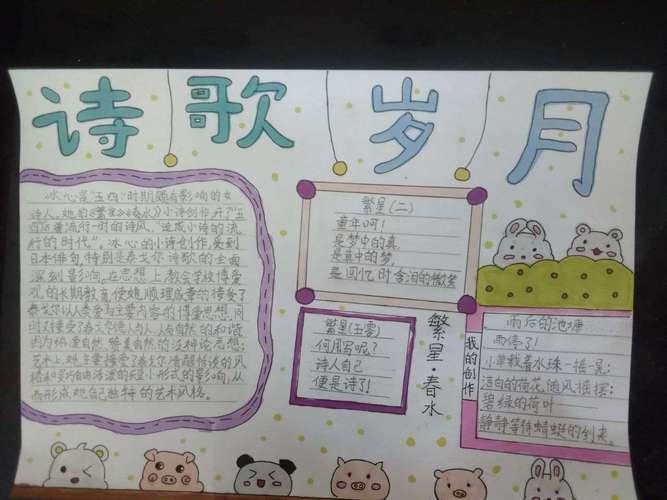 诗歌岁月
冰心是"五四"时期颇有影响的女
诗人。她的《繁星》《春水》小诗创作开了"五
四"以来流行一时的诗风,造成"小诗的流
行的时代"。冰心的小诗创作,受到
日本俳句,特别是泰戈尔诗歌的全面
深刻影响。在思想上教会学校博爱
观的长期教育,使她顺理成章的接受了
泰戈尔以人类爱为主要内容的博爱思想,同
时又接受了泰戈尔人与人,人与自然的和谐
因为热爱自然
艺术上,她主要接受了泰戈尔清醒恬淡的风
格和灵巧自由活泼的短小形式的影响,从
而形成她自己独特的艺术风格。
繁星(二)
童年呵!
是梦中的真,
是真中的梦,
是回忆时含泪的微笑
繁星(五零)
何用写呢?
诗人自己
便是诗了!
繁星·春水
我的创作
雨后的池塘
雨停了!
小草载着水珠一摇一晃;
洁白的荷花,随风摇摆;
碧绿的荷叶
静静等候蜻蜓的到来。